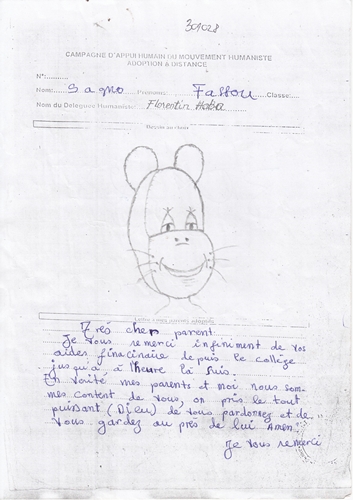 301028
CAMPAGNE D'APPUI HUMAIN DU MOUVEMENT HUMANISTE
ADOPTION A DISTANCE
N°:
Nom: Sagno Prénoms: Fassou Classe:
Nom du Délégués Humaniste: Florentin Haba
Dessin au choix
Très cher parent.
Je vous remerci infiniment de vos
aides finacinaire depuis le collège
jusqu'à à l'heure là suis.
En vérité mes parents et moi nous som-
mes content de vous, on pris le tout
puissant (Dieu) de vous pardonnez et de
vous gardez au près de lui Amen.
Je vous remerci